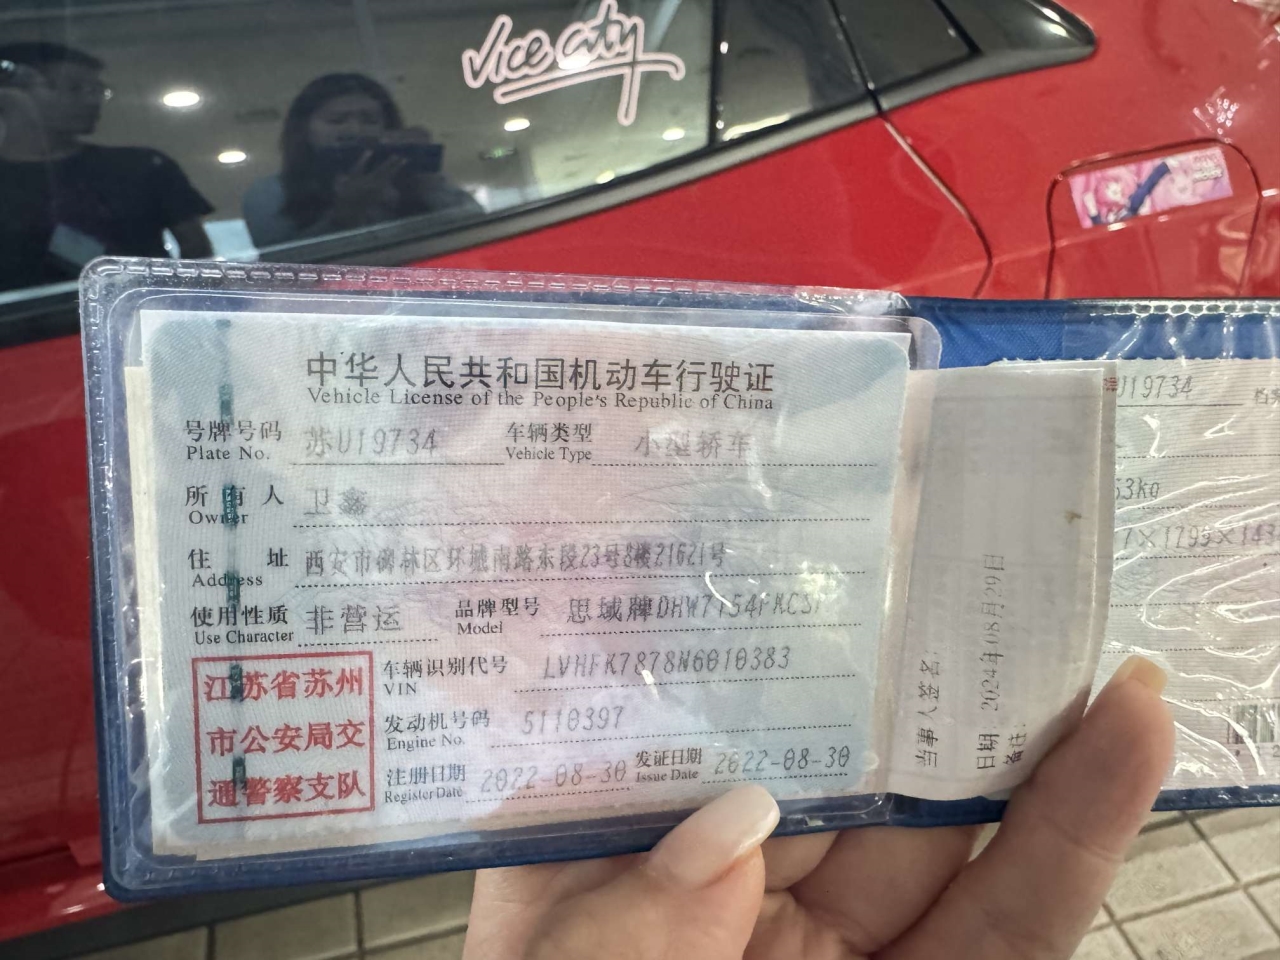 vice city
中华人民共和国机动车行驶证
Vehicle License of the People's Republic of China
号牌号码 苏U19734 车辆类型 小型轿车
Plate No. Vehicle Type
所有人 卫鑫
Owner
住址 西安市碑林区环城南路东段23号8楼21621号
Address
使用性质 非营运 品牌型号 思域牌DHW7154FKCSF
Use Character Model
车辆识别代号 LVHFK7878N6010383
VIN
发动机号码 5110397
Engine No.
注册日期 2022-08-30 发证日期 2022-08-30
Register Date Issue Date
江苏省苏州
市公安局交
通警察支队
当事人签名:
日期: 2024年08月29日
备注:
U19734
53kg
7×1799×143